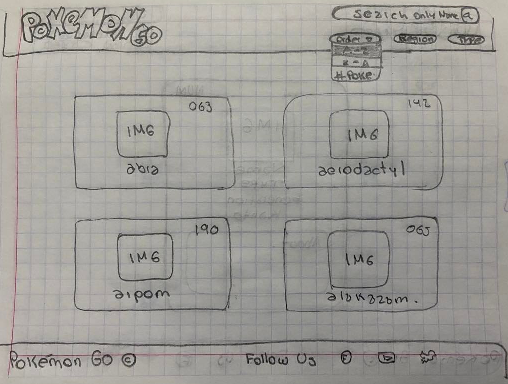 POKEMON GO
Search only Name
Order Region Type
A-Z
Z-A
#Poke
063
IMG
abra
142
IMG
aerodactyl
190
IMG
aipom
065
IMG
alakazam.
Pokémon GO ©
Follow Us